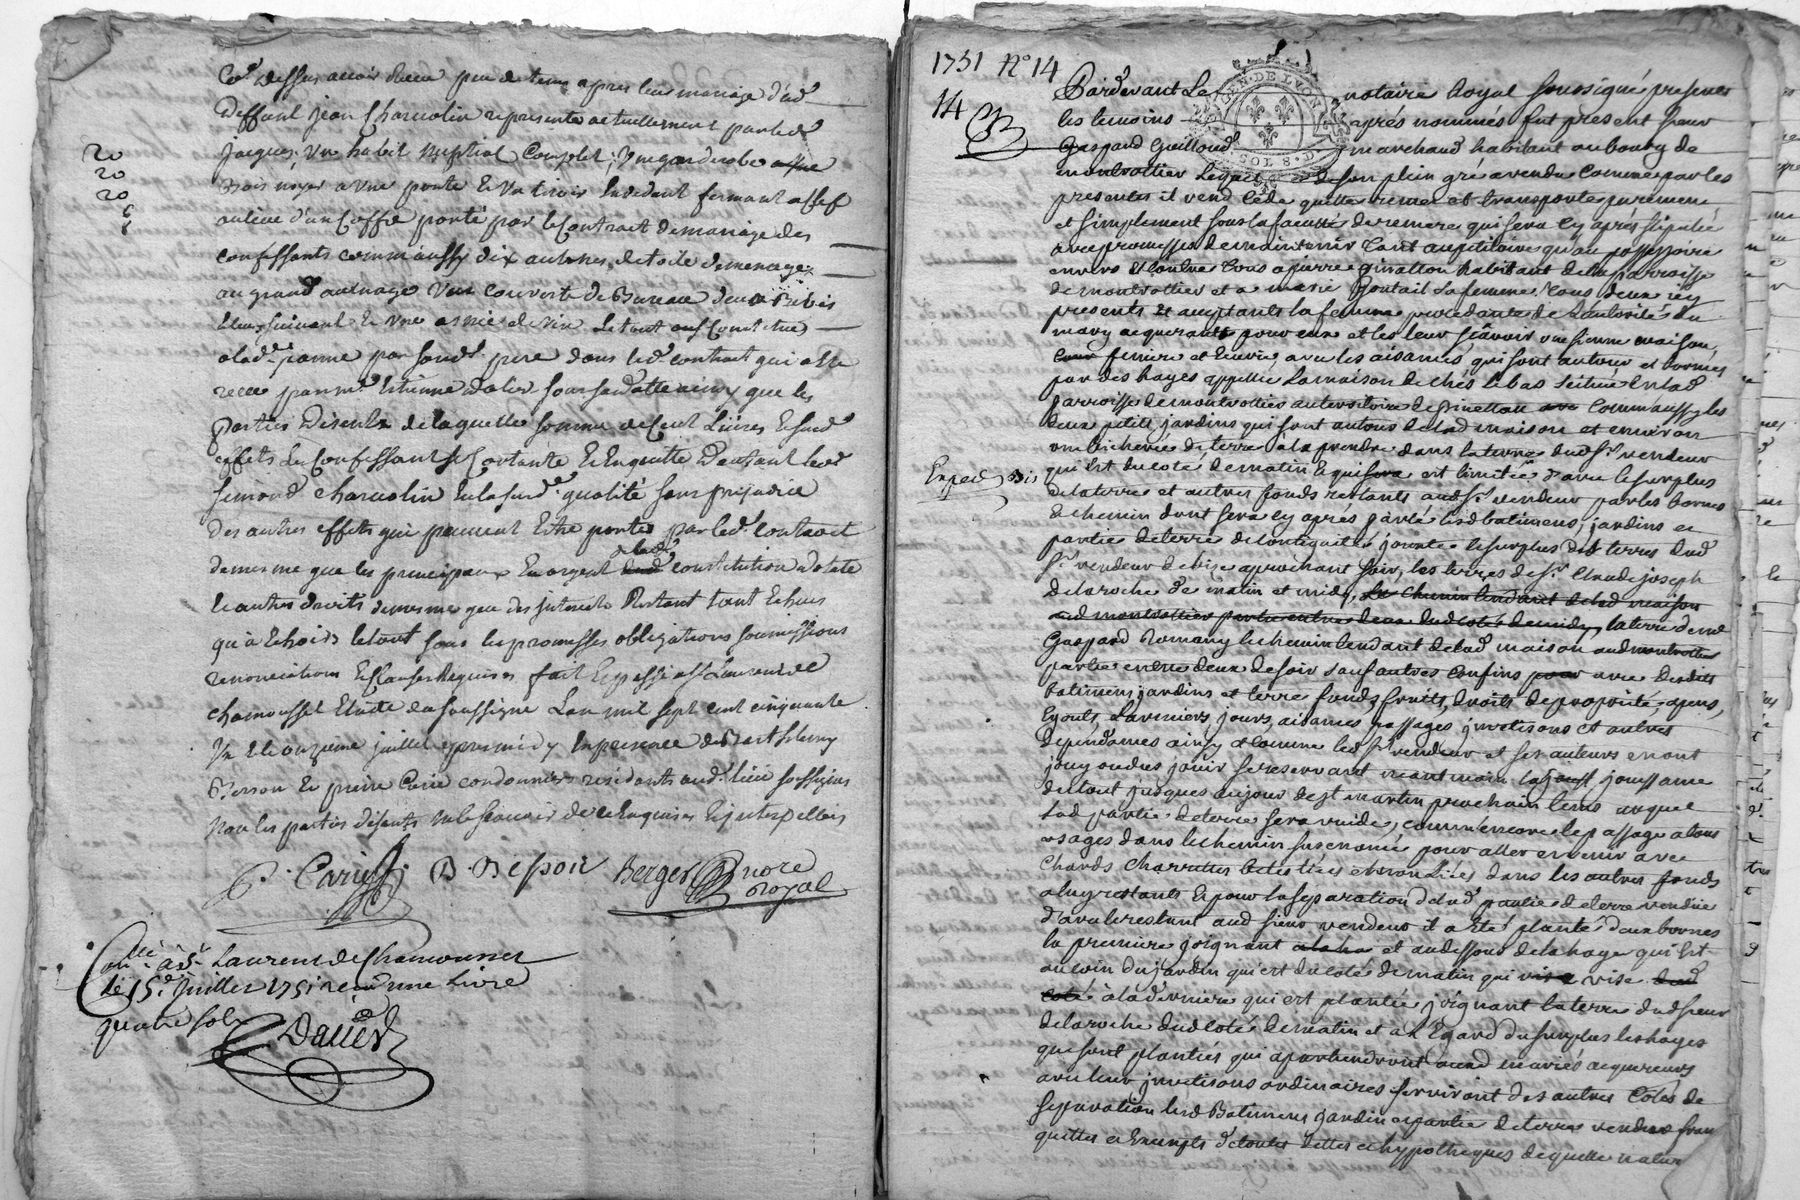 Cy dessus avoir Receu peu de tems apres leur mariage dud
Deffunt jean Charvolin represente actuellement par led
jacques, un habit nuptial Complet, un garderobe
bois noyer a une porte & un tiroir fermant a clef
au lieu d'un Coffre porté par le Contract de mariage des
confessants comm'aussy dix aulnes de toile de menage
au grand aulnage une couverte de Bureau deux Brebis
leur suivant & une asnée de vin Le tout aussy Constitué
a lad. par son d. pere dans led. contract qui a esté
receu par me Etienne notaire a ainsy que les
Parties Disent De laquelle somme de Cent Livres & susd
effets Les Confessants se Contente & En quitte D'autant led
Simond Charvolin En la susd. qualité sans prejudice
Des autres effets qui peuvent Estre portés par led. Contract
de mesme que les principaux En argent de lad. constitution dotale
& autres droits de mesme que des interests Restant tant Echeus
qu'à Echoir le tout sous les promesses obligations soumissions
renonciations & Clauses Requises fait & passé a St Laurent de
Chamousset Etude du soussigné L'an mil sept cent cinquante
Un & le onzieme juillet apres midy En presence de Barthelemy
Besson & pierre Carie cordonniers residants aud. lieu soussignes
Non les parties disants ne le scavoir de ce Enquises & interpellées
P. Carie B. Besson Berger nore
Royal
Conllé à St Laurent de Chamousset
le 15e. Juillet 1751 reçu une Livre
quatre sols
20
20
20
1751 No 14
14
GEN. DE LYON
SOLS. D.
Pardevant Le notaire Royal soussigné presents
les temoins après nommés fut present sieur
Gaspard Guilloud marchand habitant au bourg de
montrottier Lequel de son plein gré a vendu Comme par les
presentes il vend Cede quitte remet et transporte purement
et simplement sous la faculté de remere qui sera Cy après stipulée
avec promesses de maintenir tant au petitoire qu'au possessoire
envers & Contre tous a pierre habitant de la parroisse
de montrottier et a marie sa femme, tous deux icy
presents & acceptants la femme procedante de L'autorité du
mary acquerants pour eux et les leur sçavoir une sienne maison,
feniere et Ecurie avec les aisances qui sont autour et bornés
par des hayes appellée La maison de chés le bas Scituée en lad
parroisse de montrottier au territoire de Comm'aussy les
deux petits jardins qui sont autour de lad maison et environ
une bicherée de terre à la prendre dans la terre dud Sr vendeur
Exped.
qui est du cote de matin & qui sera est limitée d'avec le surplus
de la terre et autres fonds restants aud Sr vendeur par les bornes
& chemin dont sera Cy après parlé lesd batimens, jardins et
partie de terre de Contiguité jouxte le surplus des terres dud
Sr vendeur de bize aprochant soir, les terres de Sr Claude joseph
de laroche de matin et midy, Le Chemin tendant de lad maison
aud montrottier partie entre deux dud coté de midy, la terre dem
Gaspard Romany le chemin tendant de lad maison aud montrottier
partie entre deux de soir sauf autres Confins avec desdits
batimens jardins et terre fonds, fruits, droits de proprieté, agens,
Egouts, Larmiers, jours, aisances, passages, investisons et autres
Dependances ainsy & Comme led Sr vendeur et ses auteurs en ont
jouy ou dus jouir se reservant neantmoin jouissance
du tout jusques au jour de st martin prochain tems auquel
Lad partie de terre sera vuide, comm'encore le passage a tous
usages dans le chemin susenoncé pour aller et venir avec
Chards Charrettes betes liées et non Liées dans les autres fonds
a luy restants & pour la separation de lad partie de terre vendue
D'avec le restant aud sieur vendeur il a eté planté deux bornes
la premiere joignant et au dessous de la haye qui est
au coin du jardin qui est du coté de matin qui vise
à la derniere qui est plantée joignant la terre dud sieur
de laroche dud coté de matin et a L'Egard du surplus les hayes
qui sont plantées qui apartiendront aud mariés acquereurs
avec leur investisons ordinaires serviront des autres Cotés de
separation lesd Batimens jardin et partie de terre vendus franc
quittes & Exempts de toutes dettes et hypotheques de quelle nature